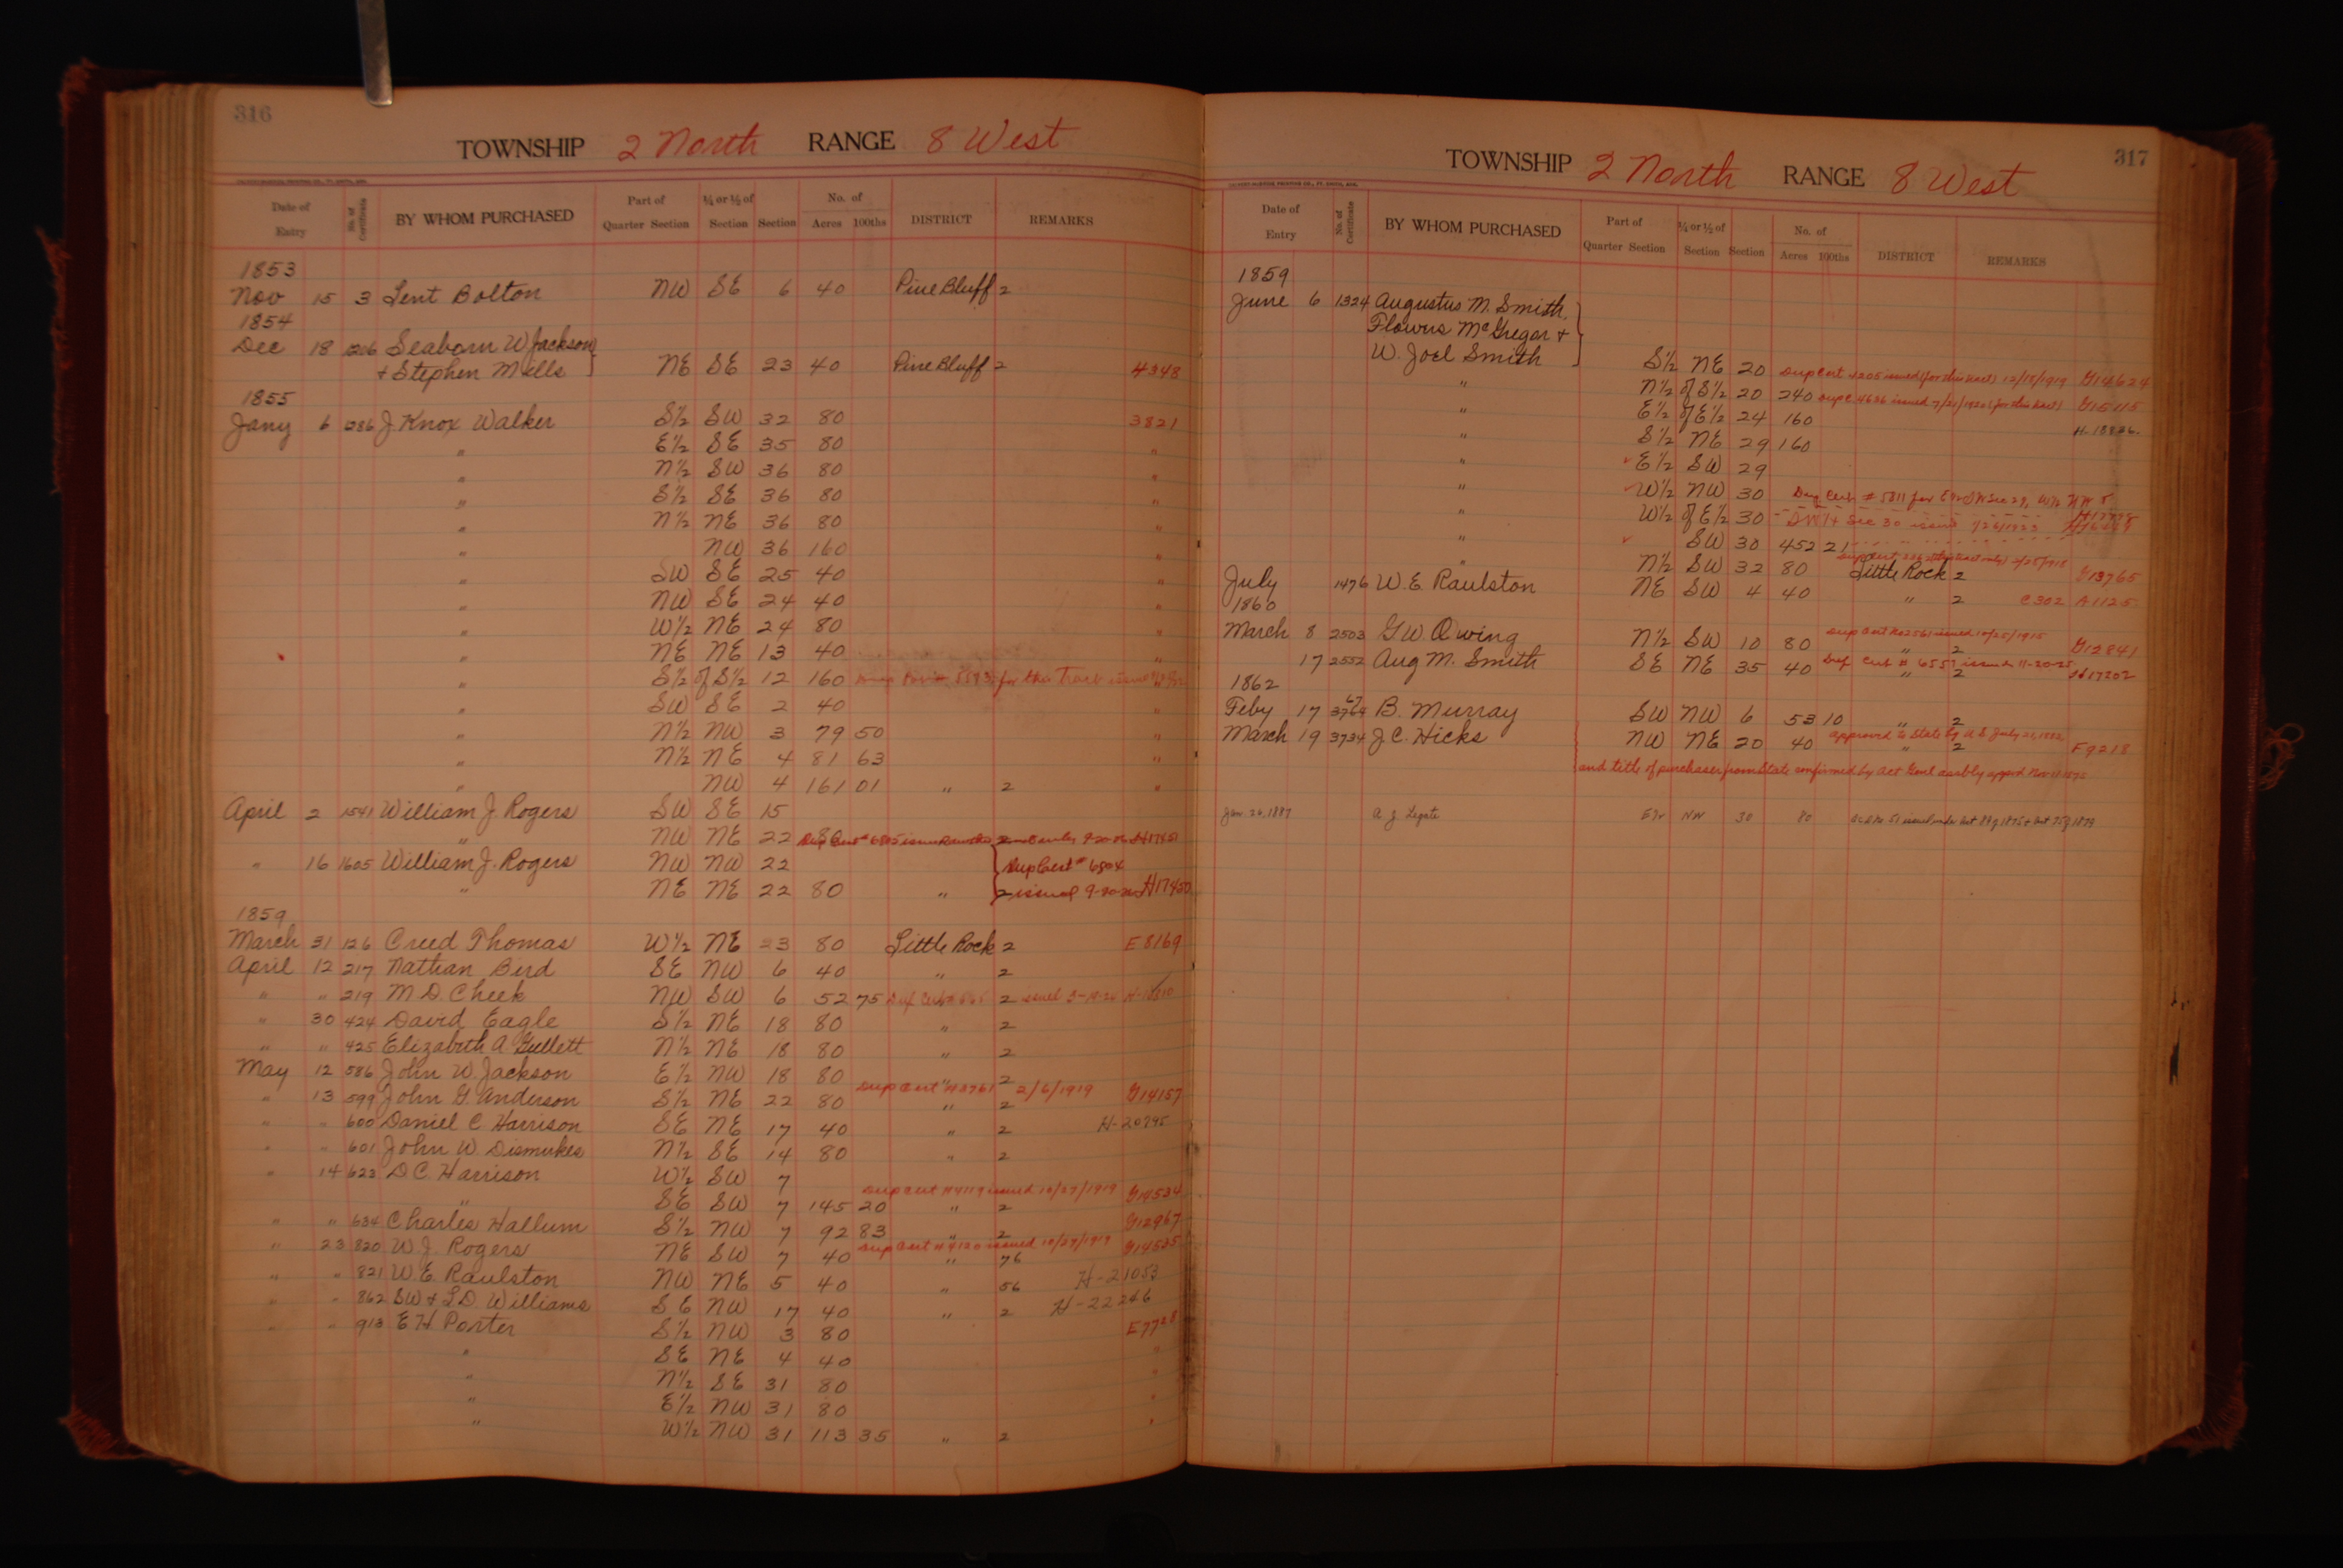 316
TOWNSHIP 2 North RANGE 8 West
Date of Entry No. of Certificate BY WHOM PURCHASED Part of Quarter Section ¼ or ½ of Section Section No. of Acres 100ths DISTRICT REMARKS
1853
Nov 15 3 Lent Bolton NW SE 6 40 Pine Bluff 2
1854
Dec 18 1206 Seaborn W Jackson
+ Stephen Mills NE SE 23 40 Pine Bluff 2 4348
1855
Jany 6 1286 J Knox Walker S½ SW 32 80 3821
" E½ SE 35 80 "
" N½ SW 36 80
" S½ SE 36 80 "
" N½ NE 36 80 "
" NW 36 160 "
" SW SE 25 40 "
" NW SE 24 40 "
" W½ NE 24 80 "
" NE NE 13 40 "
" S½ of S½ 12 160 for this Tract "
" SW SE 2 40 "
" N½ NW 3 79 50 "
" N½ NE 4 81 63 "
" NW 4 161 01 " 2 "
April 2 1541 William J. Rogers SW SE 15
" NW NE 22 80
" 16 1605 William J. Rogers NW NW 22 Dup Cert # 6804
" NE NE 22 80 " 2 issued 9-20-26 H17450
1859
March 31 126 Creed Thomas W½ NE 23 80 Little Rock 2 E 8169
April 12 217 Nathan Bird SE NW 6 40 " 2
" " 219 M D. Cheek NW SW 6 52 75 2 issued
" 30 424 David Eagle S½ NE 18 80 " 2
" " 425 Elizabeth A Gullett N½ NE 18 80 " 2
May 12 586 John W. Jackson E½ NW 18 80 " 2
" 13 599 John G. Anderson S½ NE 22 80 Dup Cert # 3761 " 2 2/6/1919 G14157
" " 600 Daniel C Harrison SE NE 17 40 " 2 H-20795
" " 601 John W. Dismukes N½ SE 14 80 " 2
" 14 623 D C. Harrison W½ SW 7
" SE SW 7 145 20 Dup Cert #4119 issued 10/27/1919 " 2 G14534
" " 634 Charles Hallum S½ NW 7 92 83 " 2 G12967
" 23 820 W J. Rogers NE SW 7 40 Dup Cert #4120 issued 10/27/1919 " 76 G14535
" " 821 W. E. Raulston NW NE 5 40 " 56 H-21053
" " 862 SW + L D. Williams SE NW 17 40 " 2 H-22246
" " 913 E H Porter S½ NW 3 80 E7728
" SE NE 4 40 "
" N½ SE 31 80 "
" E½ NW 31 80 "
" W½ NW 31 113 35 " 2 "
317
TOWNSHIP 2 North RANGE 8 West
Date of Entry No. of Certificate BY WHOM PURCHASED Part of Quarter Section ¼ or ½ of Section Section No. of Acres 100ths DISTRICT REMARKS
1859
June 6 1324 Augustus M. Smith,
Flowers McGregor +
W. Joel Smith S½ NE 20 Dup Cert 4205 issued (for this tract) 12/18/1919 G14624
" N½ of S½ 20 240 Dup C 4686 issued 7/21/1920 (for this tract) G15115
" E½ of E½ 24 160
" S½ NE 29 160
" E½ SW 29
" W½ NW 30 Dup Cert # 5811 for E½ SW Sec 29, W½ NW
" W½ of E½ 30 SW¼ Sec 30 issued
" SW 30 452 21
" N½ SW 32 80 Little Rock 2 G13765
July 1476 W. E. Raulston NE SW 4 40 " 2 C302 A1125
1860
March 8 2503 G W. Owing N½ SW 10 80 Dup Cert No 2561 issued 10/25/1915 " 2 G12841
17 2552 Aug M. Smith SE NE 35 40 Dup Cert # 6557 issued 11-20-25 " 2 H17202
1862
Feby 17 B. Murray SW NW 6 53 10 " 2
March 19 3734 J C. Hicks NW NE 20 40 approved to State by U S July 21, 1882 " 2 E9218
and title of purchaser from State confirmed by Act Genl assbly apprvd Nov
Jan. 26, 1887 A J Legate E½ NW 30 80